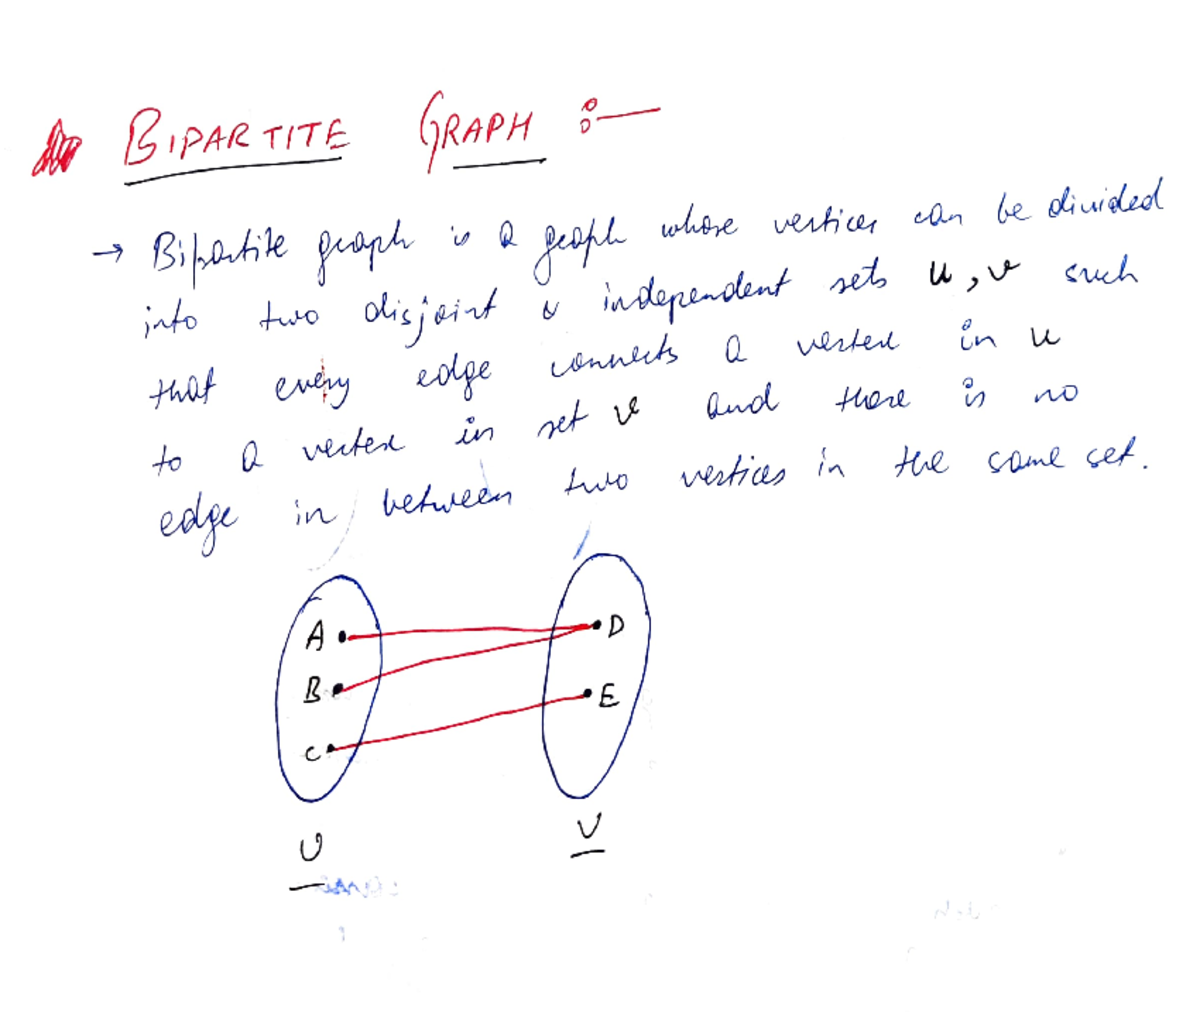 BIPARTITE GRAPH :-
→ Bipartite graph is a graph whose vertices can be divided
into two disjoint & independent sets u, v such
that every edge connects a vertex in u
to a vertex in set v and there is no
edge in between two vertices in the same set.
A D
B E
C
U V